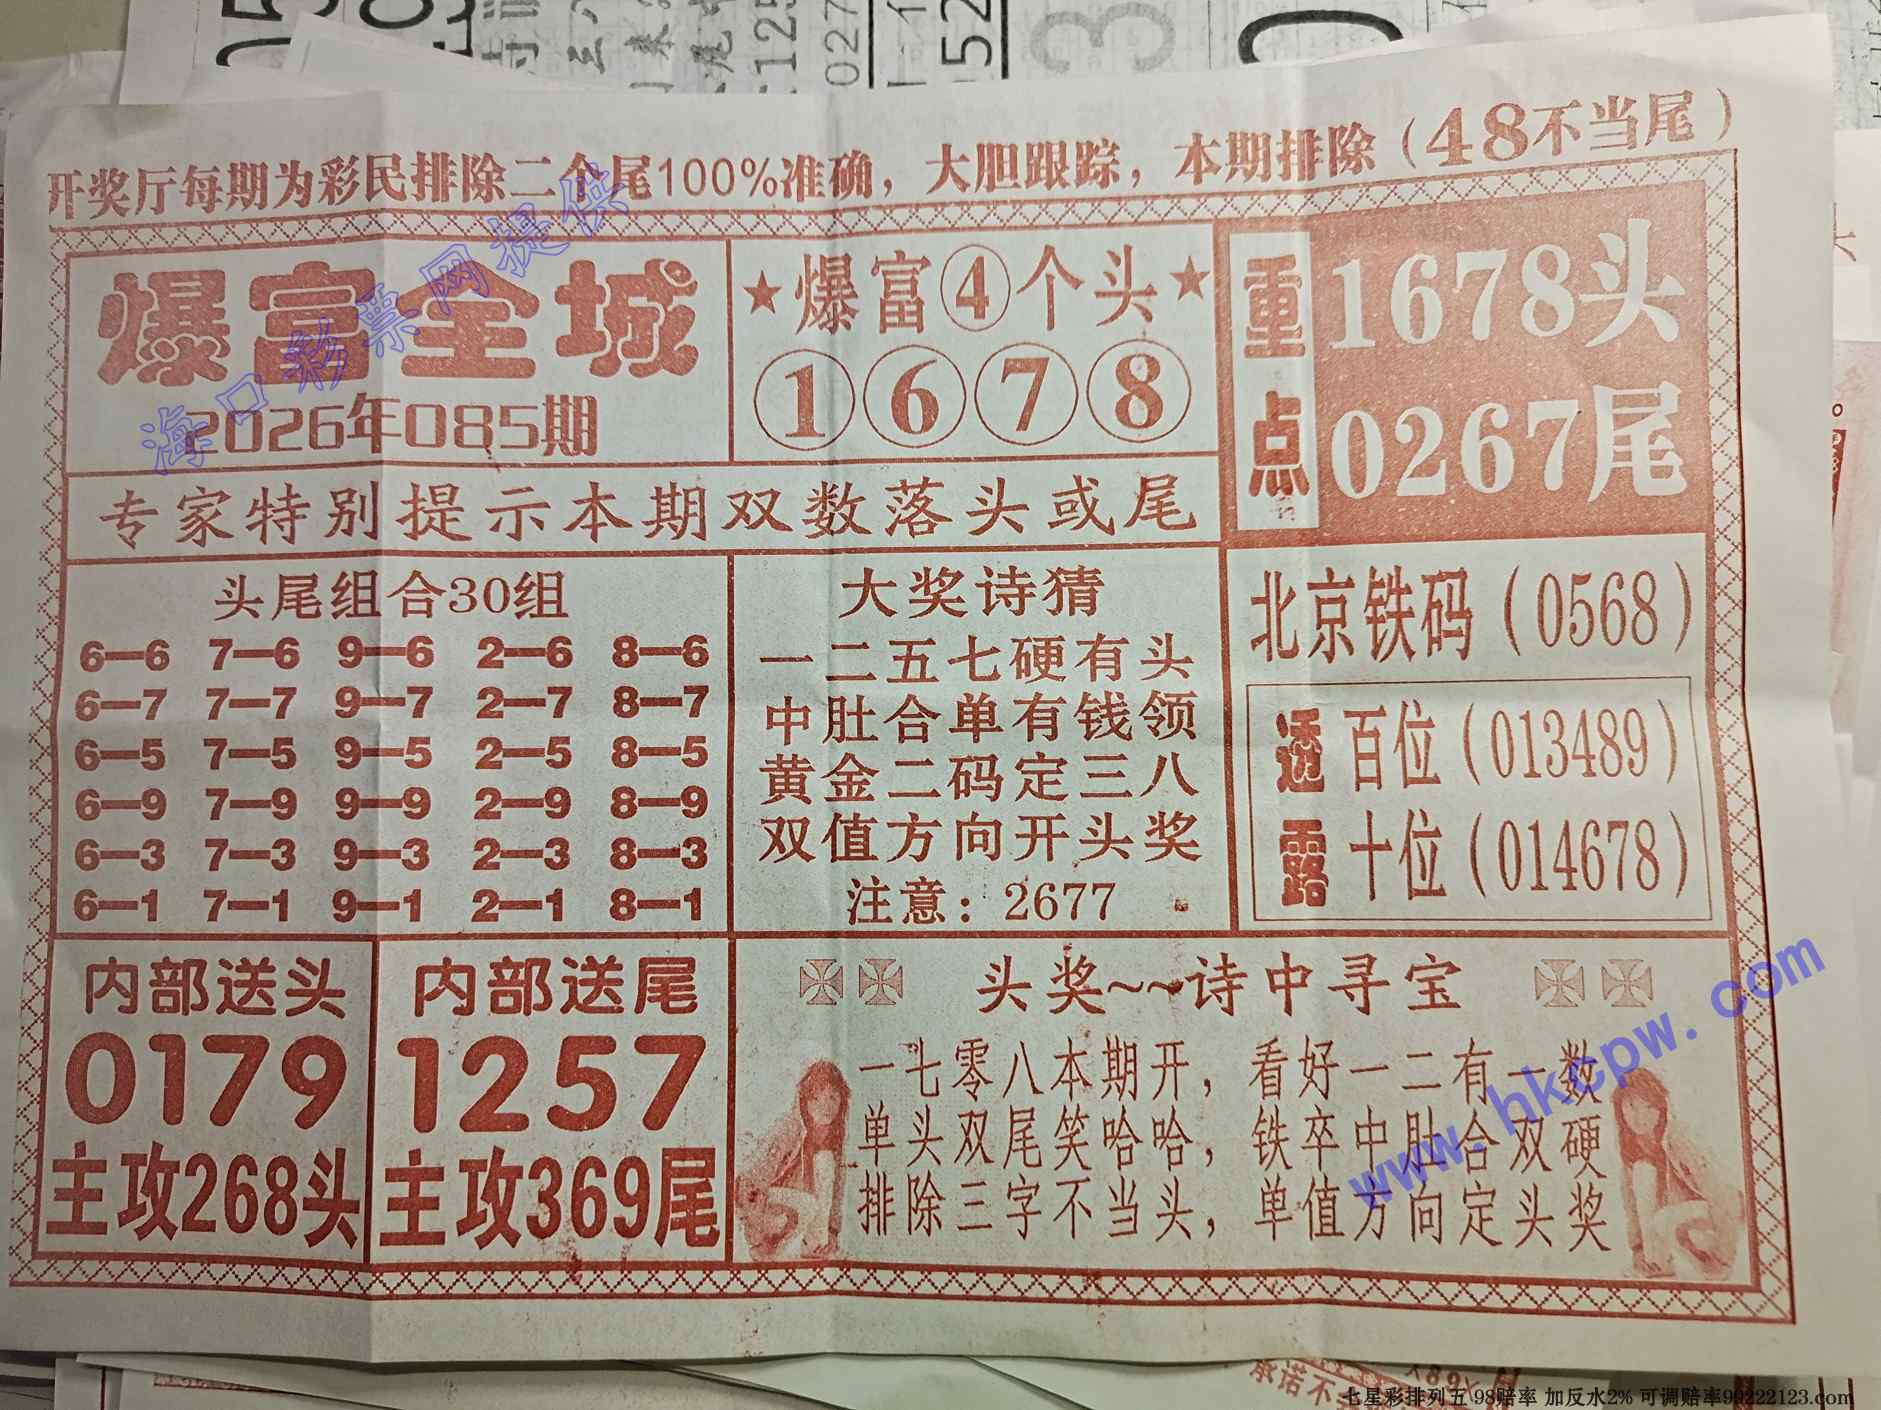 开奖厅每期为彩民排除二个尾100%准确，大胆跟踪，本期排除（48不当尾）
爆富全城
2026年085期
★爆富④个头★
①⑥⑦⑧
重点
1678头
0267尾
专家特别提示本期双数落头或尾
头尾组合30组
6—6 7—6 9—6 2—6 8—6
6—7 7—7 9—7 2—7 8—7
6—5 7—5 9—5 2—5 8—5
6—9 7—9 9—9 2—9 8—9
6—3 7—3 9—3 2—3 8—3
6—1 7—1 9—1 2—1 8—1
大奖诗猜
一二五七硬有头
中肚合单有钱领
黄金二码定三八
双值方向开头奖
注意：2677
北京铁码（0568）
透露
百位（013489）
十位（014678）
内部送头
0179
主攻268头
内部送尾
1257
主攻369尾
头奖~~诗中寻宝
一七零八本期开，看好一二有一数
单头双尾笑哈哈，铁卒中肚合双硬
排除三字不当头，单值方向定头奖
海口彩票网提供
www.hkcpw.com
七星彩排列五 98赔率 加反水2% 可调赔率99222123.com